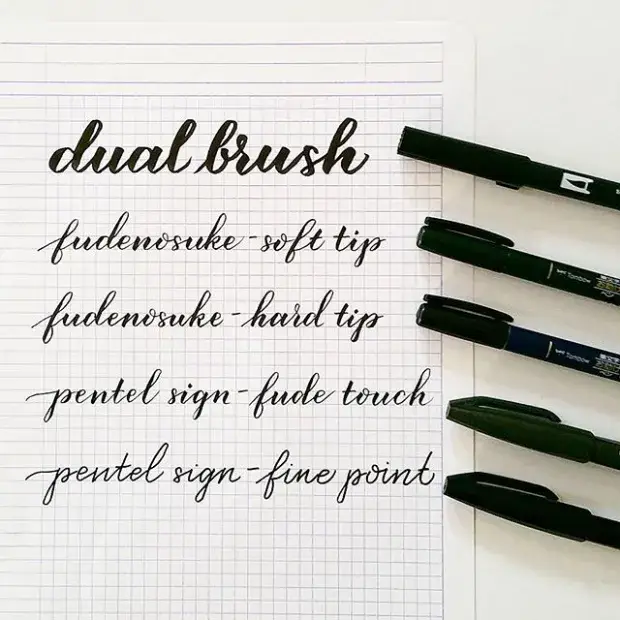 dual brush
fudenosuke - soft tip
fudenosuke - hard tip
pentel sign - fude touch
pentel sign - fine point
Tombow
Tombow